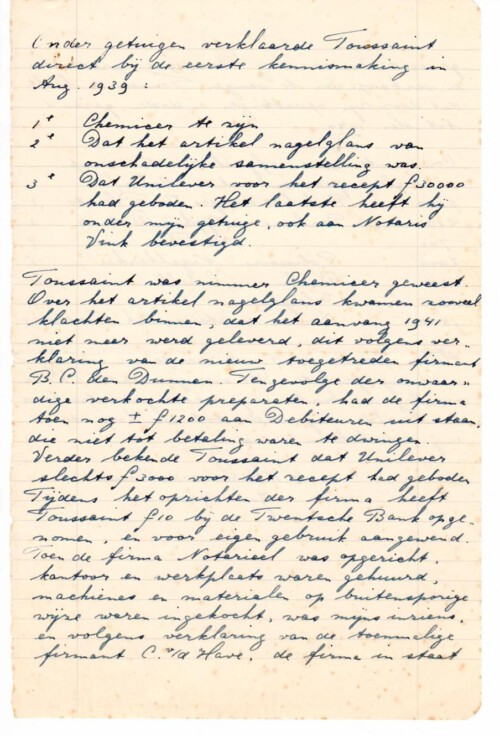 Onder getuigen verklaarde Toussaint
direct bij de eerste kennismaking in
Aug. 1939 :
1e Chemicer te zijn
2e Dat het artikel nagelglans van
onschadelijke samenstelling was.
3e Dat Unilever voor het recept f 30000
had geboden. Het laatste heeft hij
onder mijn getuige, ook aan Notaris
Vink bevestigd.
Toussaint was nimmer Chemicer geweest.
Over het artikel nagelglans kwamen zooveel
klachten binnen, dat het aanvang 1941
niet meer werd geleverd, dit volgens ver-
klaring van de nieuw toegetreden firmant
B. C. den Dunnen. Tengevolge der onvaar-
dige verkochte preparaten, had de firma
toen nog ± f 1200 aan Debiteuren uit staan,
die niet tot betaling waren te dwingen.
Verder bekende Toussaint dat Unilever
slechts f 3000 voor het recept had geboden
Tijdens het oprichten der firma heeft
Toussaint f 10 bij de Twentsche Bank opge-
nomen, en voor eigen gebruik aangewend.
Toen de firma Notarieel was opgericht,
kantoor en werkplaats waren gehuurd,
machienes en materialen op buitensporige
wijze waren ingekocht, was mijns inziens,
en volgens verklaring van de toenmalige
firmant C. v/d Have, de firma in staat